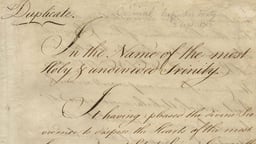 Duplicate.
In the Name of the most
Holy & undivided Trinity.
It having pleased the Divine Pro
vidence to dispose the Hearts of the most